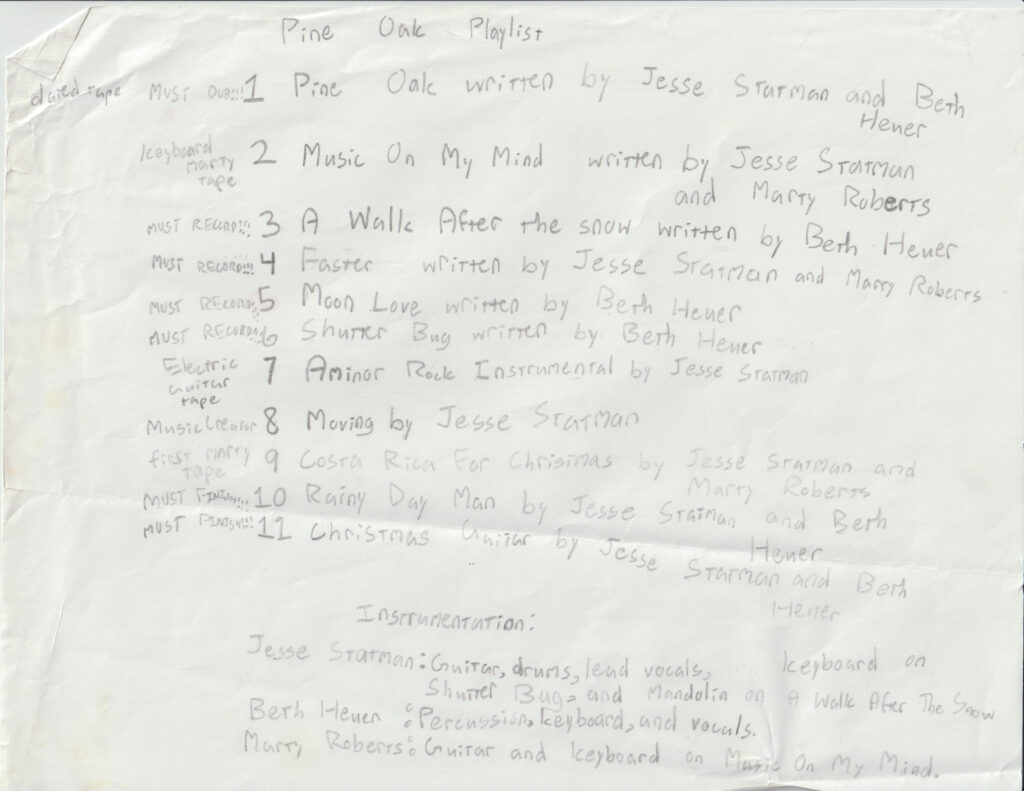 Pine Oak Playlist
dated tape MUST DUB!!! 1 Pine Oak written by Jesse Statman and Beth
Heuer
keyboard 2 Music On My Mind written by Jesse Statman
marty
tape and Marty Roberts
MUST RECORD!!! 3 A Walk After the snow written by Beth Heuer
MUST RECORD!!! 4 Faster written by Jesse Statman and Marty Roberts
MUST RECORD!!! 5 Moon Love written by Beth Heuer
MUST RECORD!!! 6 Shutter Bug written by Beth Heuer
Electric 7 Aminor Rock Instrumental by Jesse Statman
Guitar
tape
Music Creator 8 Moving by Jesse Statman
first marty 9 Costa Rica For Christmas by Jesse Statman and
tape Marty Roberts
MUST FINISH!!! 10 Rainy Day Man by Jesse Statman and Beth
Heuer
MUST FINISH!!! 11 Christmas Guitar by Jesse Statman and Beth
Heuer
Instrumentation:
Jesse Statman: Guitar, drums, lead vocals, keyboard on
Shutter Bug, and Mandolin on A Walk After The Snow
Beth Heuer : Percussion, keyboard, and vocals.
Marty Roberts: Guitar and keyboard on Music On My Mind.